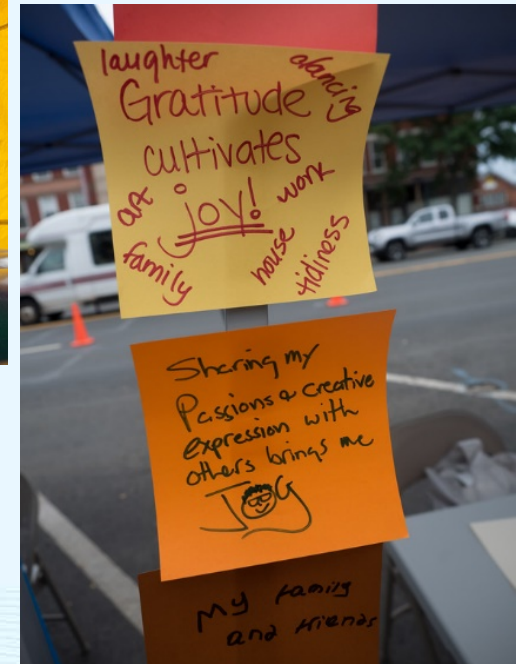 laughter
dancing
Gratitude
cultivates
joy!
art
work
family
house
tidiness
Sharing my
Passions & creative
expression with
others brings me
JOY
My family
and friends